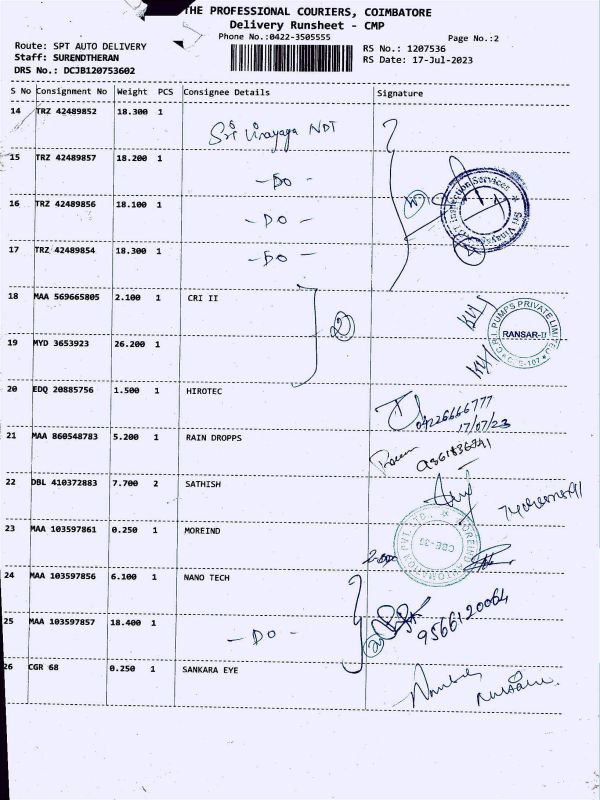 THE PROFESSIONAL COURIERS, COIMBATORE
Delivery Runsheet - CMP
Phone No.:0422-3505555
Page No.:2
Route: SPT AUTO DELIVERY
RS No.: 1207536
Staff: SURENDTHERAN
RS Date: 17-Jul-2023
DRS No.: DCJB120753602
S No Consignment No Weight PCS Consignee Details Signature
14 TRZ 42489852 18.300 1 Sri Vinayaga NDT
15 TRZ 42489857 18.200 1 - DO -
16 TRZ 42489856 18.100 1 - DO -
17 TRZ 42489854 18.300 1 - DO -
Inspection Services
Sri Vinayaga
18 MAA 569665805 2.100 1 CRI II
2
C.R.I. PUMPS PRIVATE LIMITED
RANSAR-II
19 MYD 3653923 26.200 1
20 EDQ 20885756 1.500 1 HIROTEC
04226666777
17/07/23
21 MAA 860548783 5.200 1 RAIN DROPPS
22 DBL 410372883 7.700 2 SATHISH
23 MAA 103597861 0.250 1 MOREIND
AUTOMATION PVT. LTD.
24 MAA 103597856 6.100 1 NANO TECH
25 MAA 103597857 18.400 1 - DO -
2
9566120064
26 CGR 68 0.250 1 SANKARA EYE